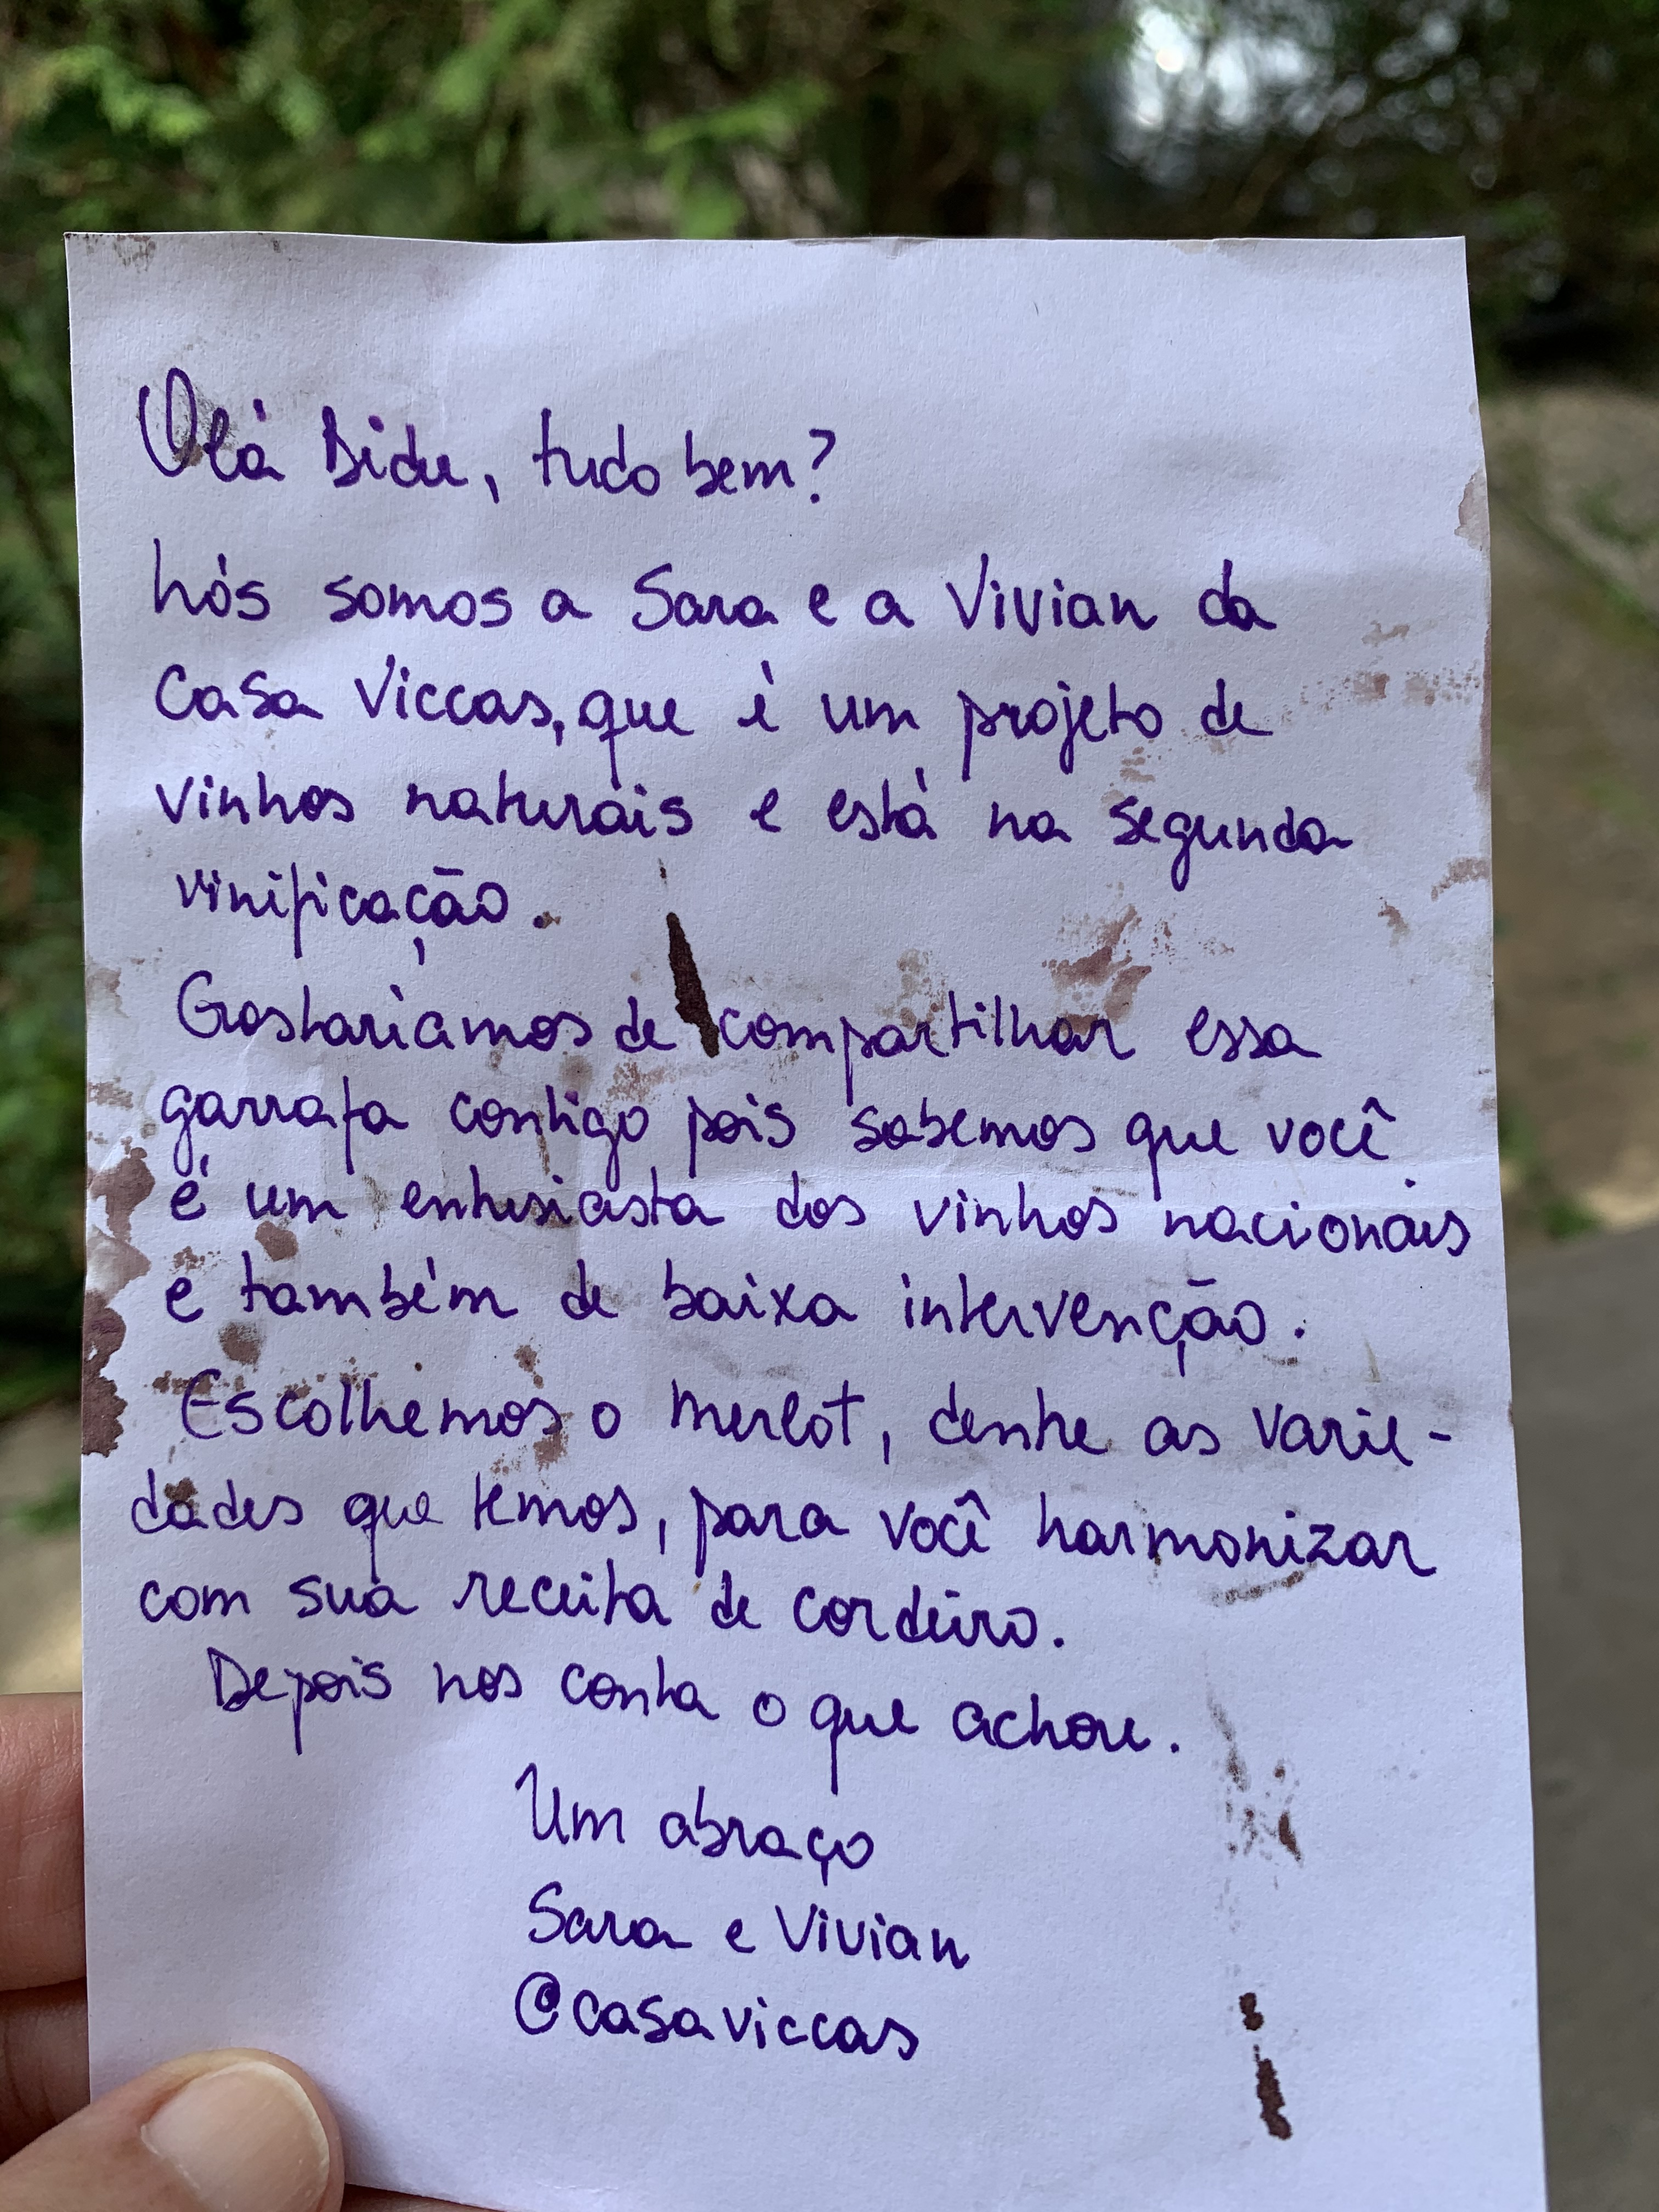 Olá Bidu, tudo bem?
Nós somos a Sara e a Vivian da
Casa Viccas, que é um projeto de
vinhos naturais e está na segunda
vinificação.
Gostaríamos de compartilhar essa
garrafa contigo pois sabemos que você
é um entusiasta dos vinhos nacionais
e também de baixa intervenção.
Escolhemos o Merlot, dentre as varie-
dades que temos, para você harmonizar
com sua receita de cordeiro.
Depois nos conta o que achou.
Um abraço
Sara e Vivian
@casaviccas